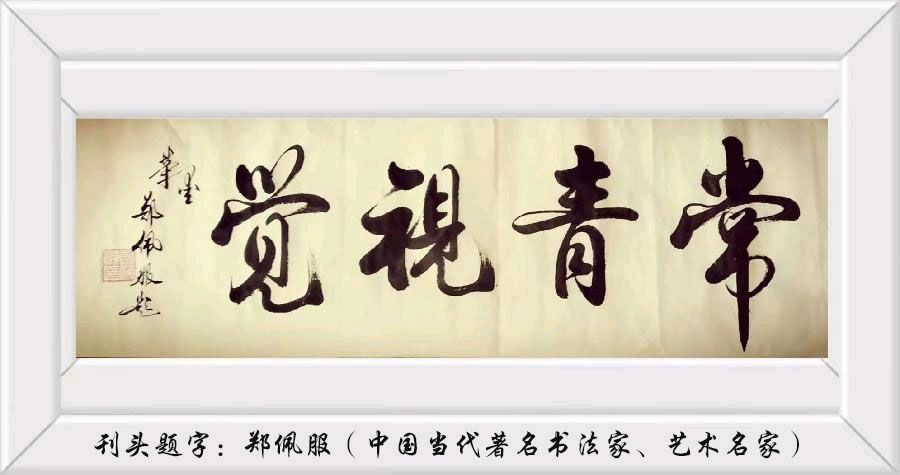 常青視觉
墨
郑佩服题
刊头题字：郑佩服（中国当代著名书法家、艺术名家）